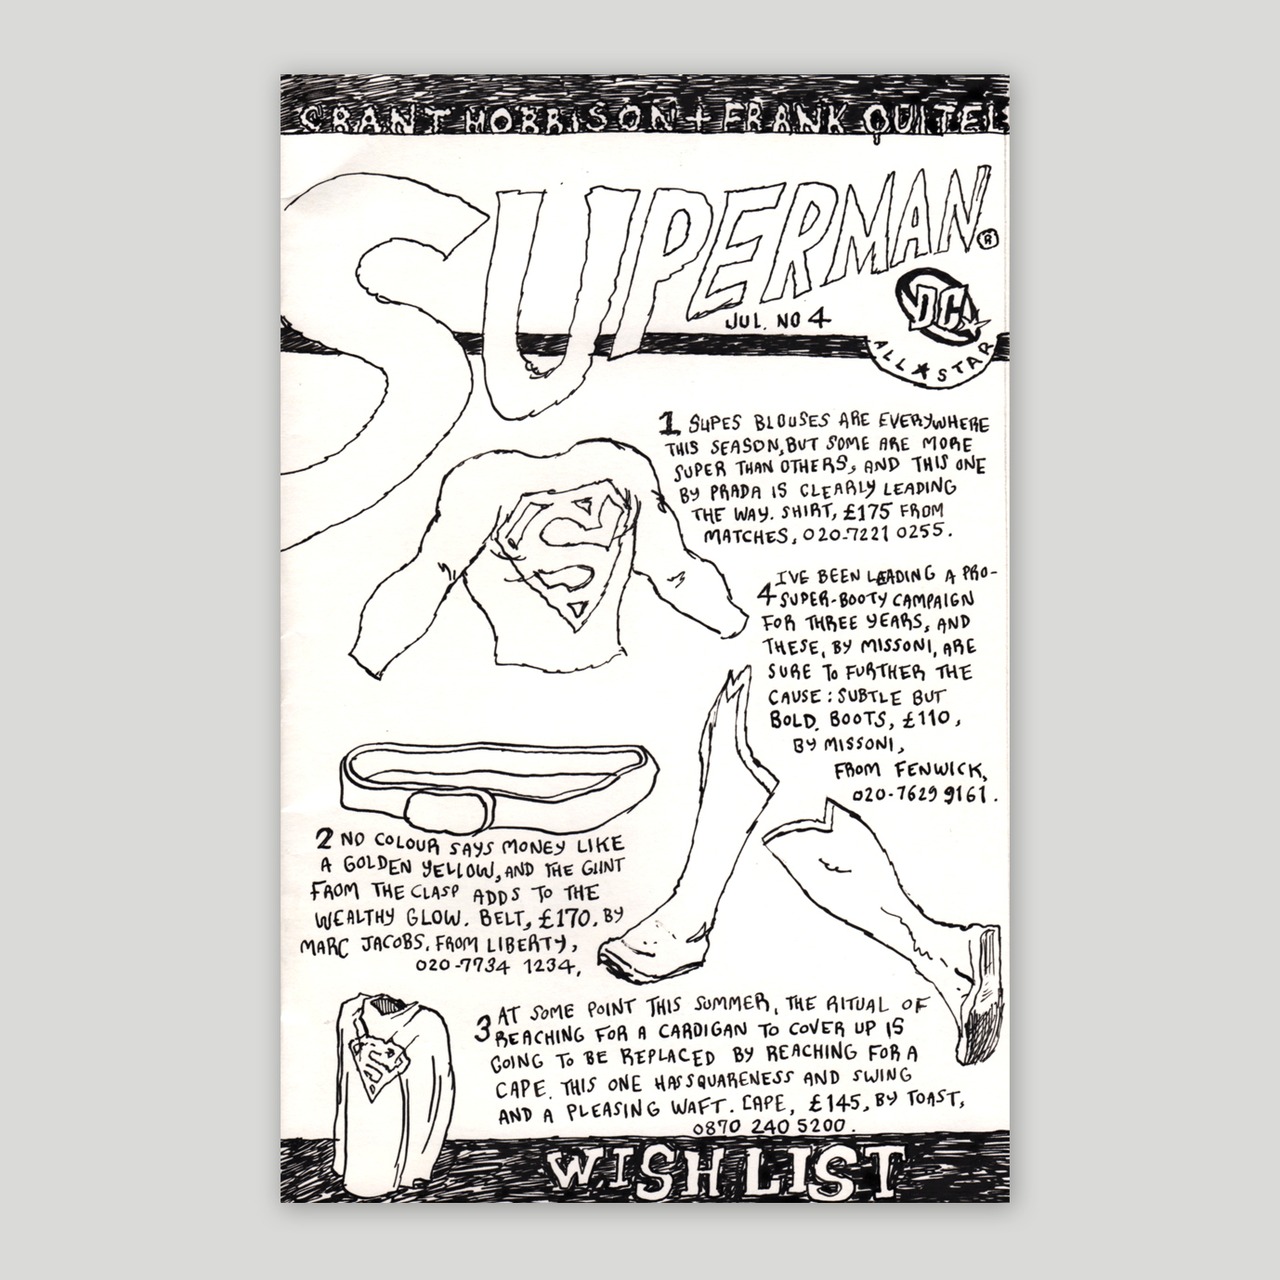 GRANT MORRISON + FRANK QUITEL
SUPERMAN®
JUL. NO 4
DC
ALL★STAR
1 SUPES BLOUSES ARE EVERYWHERE
THIS SEASON, BUT SOME ARE MORE
SUPER THAN OTHERS, AND THIS ONE
BY PRADA IS CLEARLY LEADING
THE WAY. SHIRT, £175 FROM
MATCHES, 020-7221 0255.
4 I'VE BEEN LEADING A PRO-
SUPER-BOOTY CAMPAIGN
FOR THREE YEARS, AND
THESE, BY MISSONI, ARE
SURE TO FURTHER THE
CAUSE: SUBTLE BUT
BOLD. BOOTS, £110,
BY MISSONI,
FROM FENWICK,
020-7629 9161.
2 NO COLOUR SAYS MONEY LIKE
A GOLDEN YELLOW, AND THE GLINT
FROM THE CLASP ADDS TO THE
WEALTHY GLOW. BELT, £170. BY
MARC JACOBS. FROM LIBERTY,
020-7734 1234,
3 AT SOME POINT THIS SUMMER, THE RITUAL OF
REACHING FOR A CARDIGAN TO COVER UP IS
GOING TO BE REPLACED BY REACHING FOR A
CAPE. THIS ONE HAS SQUARENESS AND SWING
AND A PLEASING WAFT. CAPE, £145, BY TOAST,
0870 240 5200.
WISH LIST